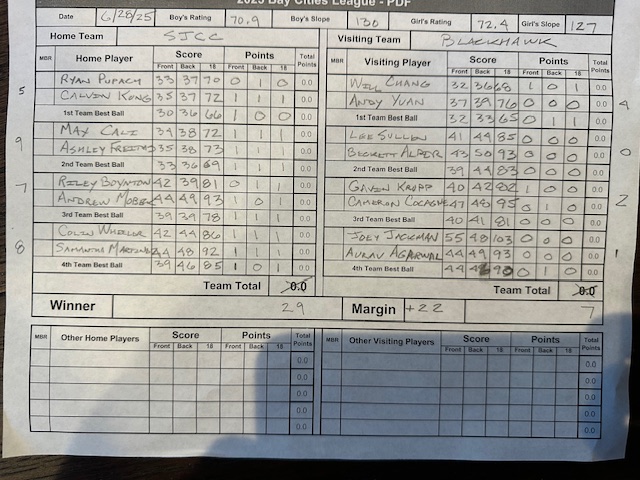 2025 Bay Cities League - PDF
Date 6/28/25 Boy's Rating 70.9 Boy's Slope 130 Girl's Rating 72.4 Girl's Slope 127
Home Team SJCC Visiting Team BLACKHAWK
MBR Home Player Score Points Total Points MBR Visiting Player Score Points Total Points
Front Back 18 Front Back 18 Front Back 18 Front Back 18
RYAN 33 37 70 0 1 0 0.0 WILL CHANG 32 36 68 1 0 1 0.0
5 CALVIN KONG 35 37 72 1 1 1 0.0 ANDY YUAN 37 39 76 0 0 0 0.0 4
1st Team Best Ball 30 36 66 1 0 0 0.0 1st Team Best Ball 32 33 65 0 1 1 0.0
MAX CALI 34 38 72 1 1 1 0.0 LEE SULLEN 41 44 85 0 0 0 0.0
9 ASHLEY FREITAS 35 38 73 1 1 1 0.0 BECKETT ALPER 43 50 93 0 0 0 0.0 0
2nd Team Best Ball 33 36 69 1 1 1 0.0 2nd Team Best Ball 39 44 83 0 0 0 0.0
7 RILEY BOYNTON 42 39 81 0 1 1 0.0 GAVIN KRUPP 40 42 82 1 0 0 0.0
ANDREW 44 49 93 1 0 1 0.0 CAMERON 47 48 95 0 1 0 0.0 2
3rd Team Best Ball 39 39 78 1 1 1 0.0 3rd Team Best Ball 40 41 81 0 0 0 0.0
COLIN WHEELER 42 44 86 1 1 1 0.0 JOEY JACKMAN 55 48 103 0 0 0 0.0
8 SAMANTHA MARTINEZ 44 48 92 1 1 1 0.0 AURAV AGARWAL 44 49 93 0 0 0 0.0 1
4th Team Best Ball 39 46 85 1 0 1 0.0 4th Team Best Ball 44 90 0 1 0 0.0
Team Total 0.0 Team Total 0.0
Winner 29 Margin +22 7
MBR Other Home Players Score Points Total Points MBR Other Visiting Players Score Points Total Points
Front Back 18 Front Back 18 Front Back 18 Front Back 18
0.0 0.0
0.0 0.0
0.0 0.0
0.0 0.0
0.0 0.0